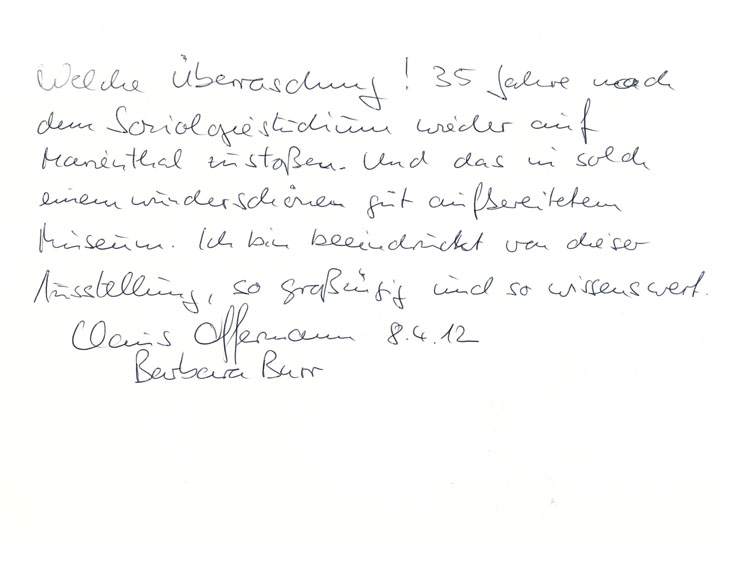 Welche Überraschung! 35 Jahre nach
dem Soziologiestudium wieder auf
Marienthal zustoßen. Und das in solch
einem wunderschönen gut aufbereitetem
Museum. Ich bin beeindruckt von dieser
Ausstellung, so großzügig und so wissenswert.
Claus Offermann 8.4.12
Barbara Burr